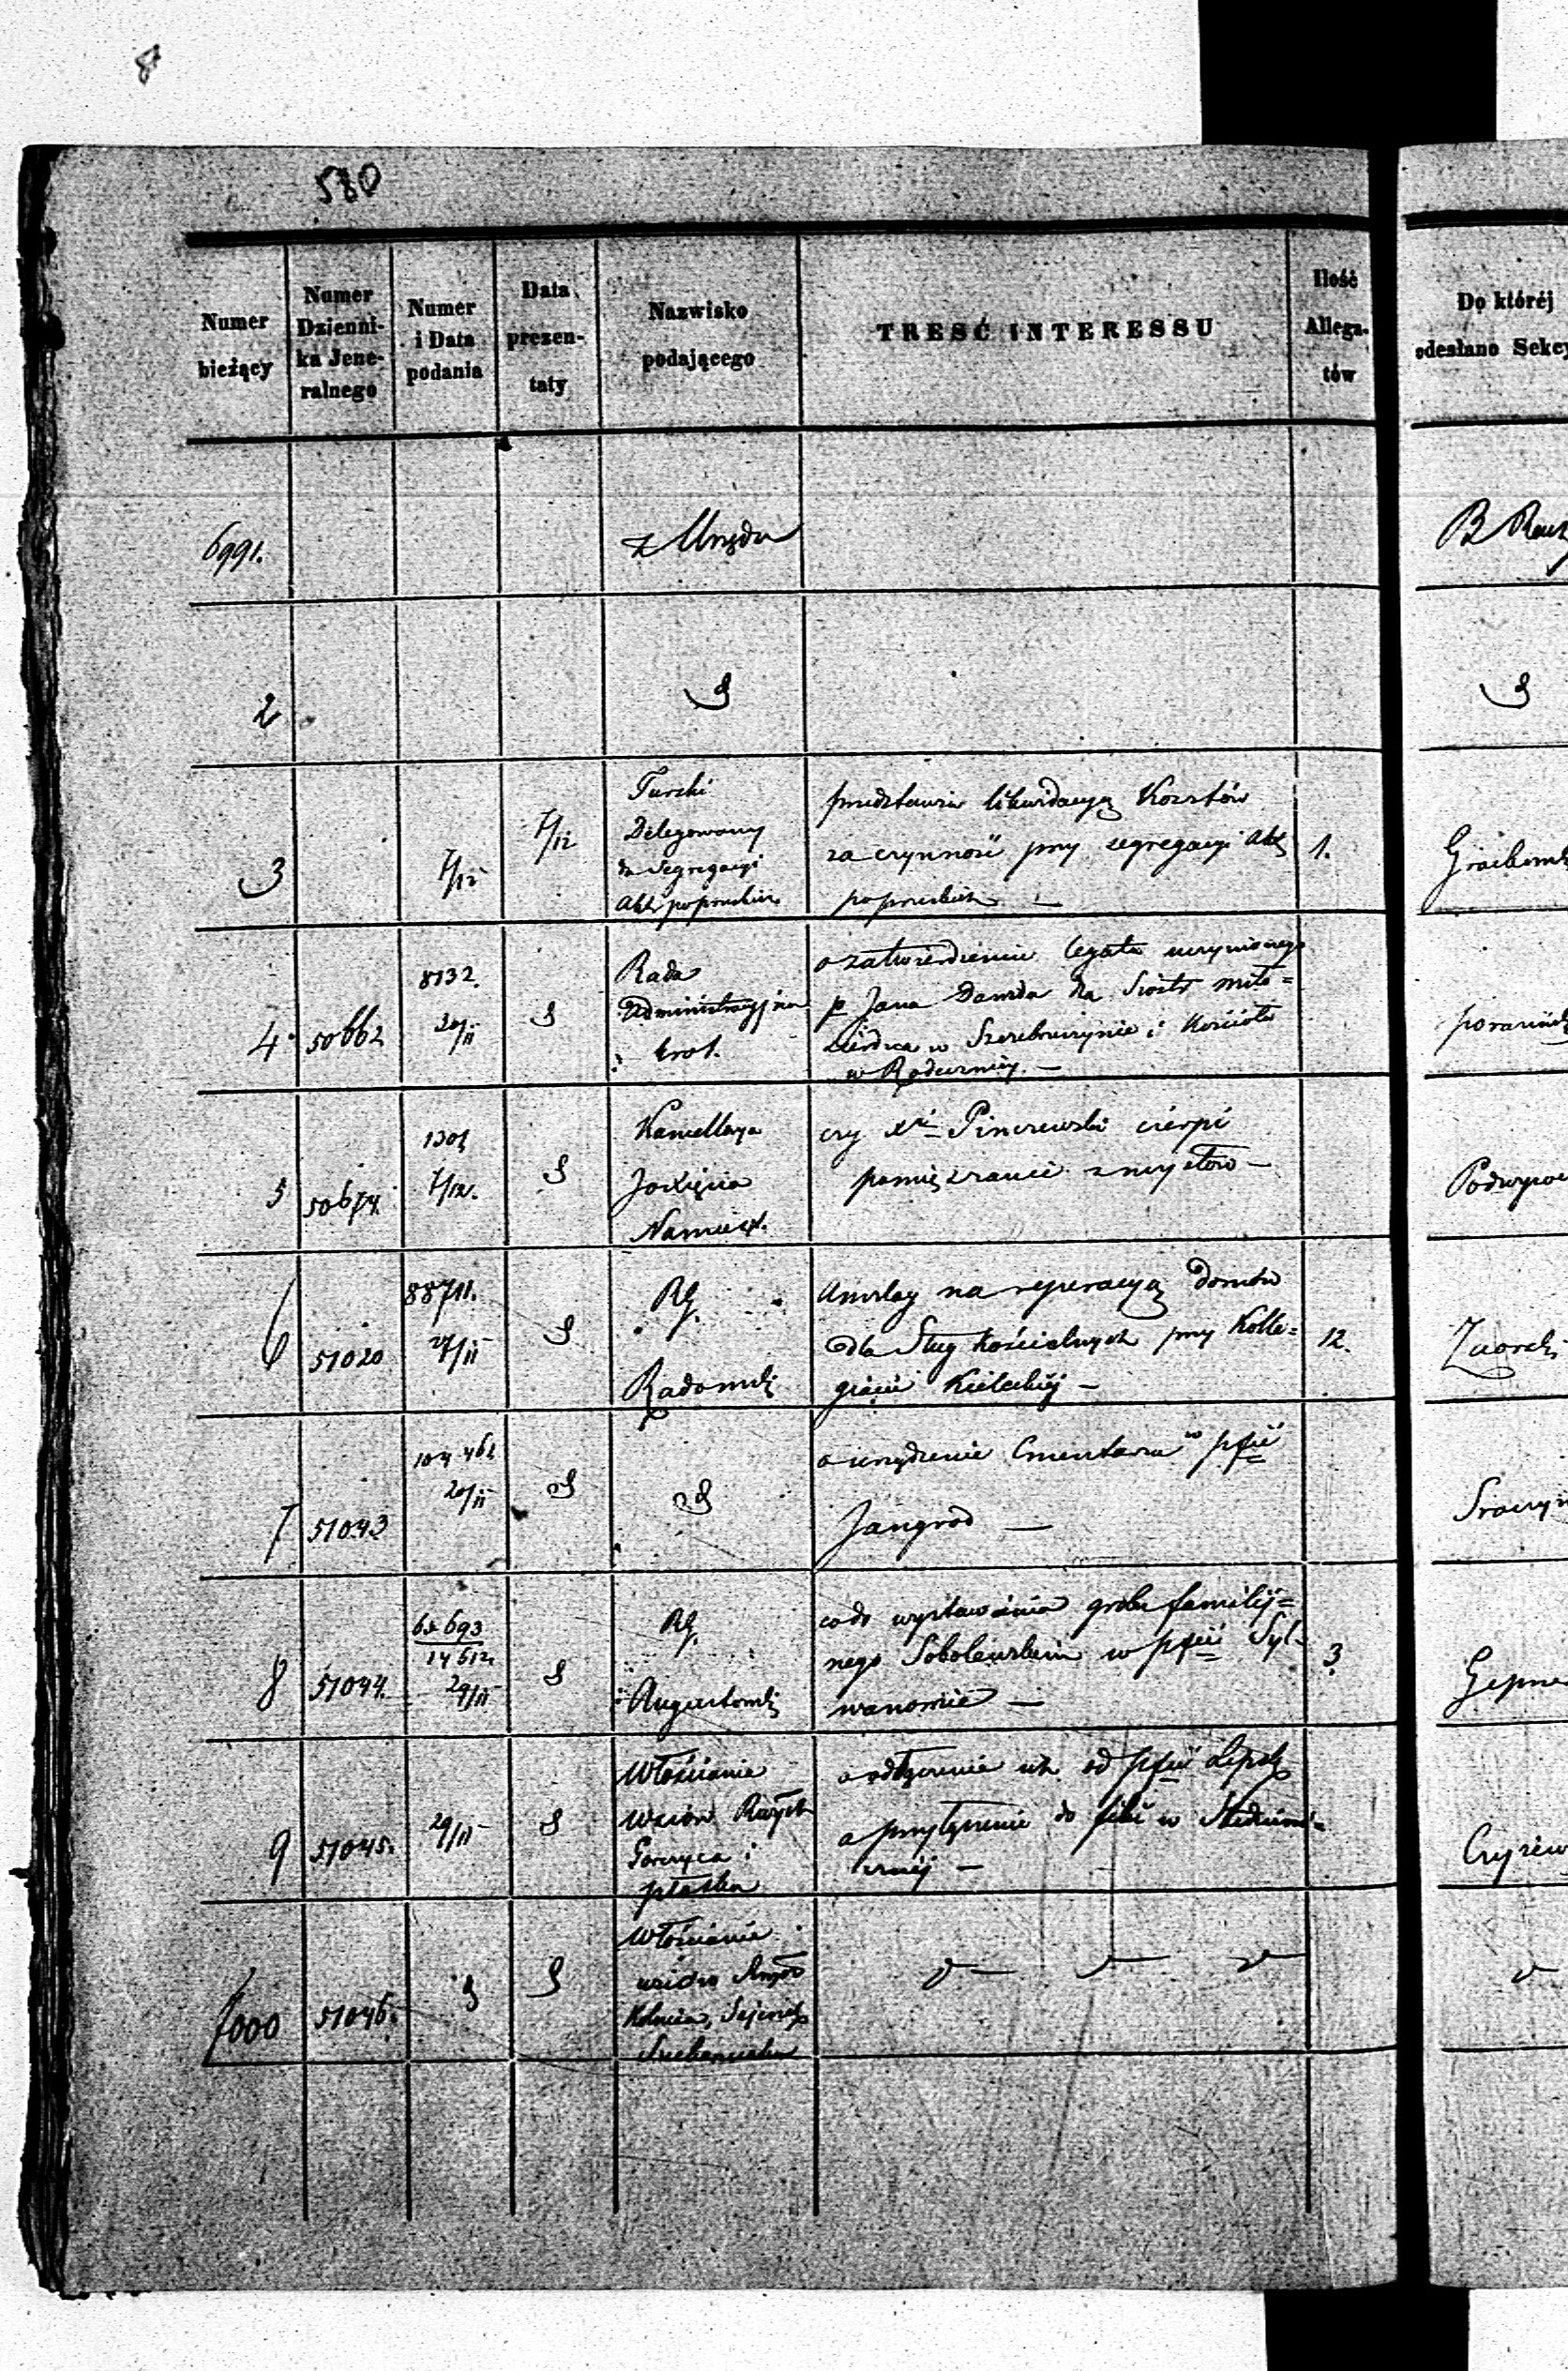 8
580
Numer bieżący
Numer Dziennika Jeneralnego
Numer i Data podania
Data prezentaty
Nazwisko podającego
TRESĆ INTERESSU
Ilość Allegatów
Do któréj
odesłano Sekcy
6991.
z Urzędu
2
3
7/12
7/12
Turski
Delegowany
do Segregacyi
Akt popruskich
przedstawia likwidacyą Kosztów
za czynność przy segregacyi Akt
popruskich —
1.
4
50662
8132.
30/11
Rada
Administracyjna
Król.
o zatwierdzenie legatu uczynionego
p Jana Dawida dla Sióstr miło=
sierdzia w Szczebrzeszynie i Kościoła
w Radecznicy. —
5
50674.
7/12.
Kancellarya
JO Xięcia
Namiest.
czy Xdz Pinczewski cierpi
pomięszanie zmysłów —
6
51020
88711.
27/11
RG.
Radomsk
Anszlag na reperacyą Domku
dla Sług Kościelnych przy Kolle=
giacie Kieleckiej —
12.
7
51043
20/11
o urządzenie Cmentarza w pfii
Jangrod —
8
51044.
14612
29/11
RG.
Augustowsk
co do wystawienia grobu familij=
nego Sobolewskim w pfii Syl-
wanowie —
3.
9
51045.
29/11
Włościanie
Wsiów
Gorczyca i
Płaska
o odłączenie ich od pfii Lipsk
a przyłączenie do filii w Studzieni=
cznej —
7000
51046.
Włościanie
wsiów
Kolnica,